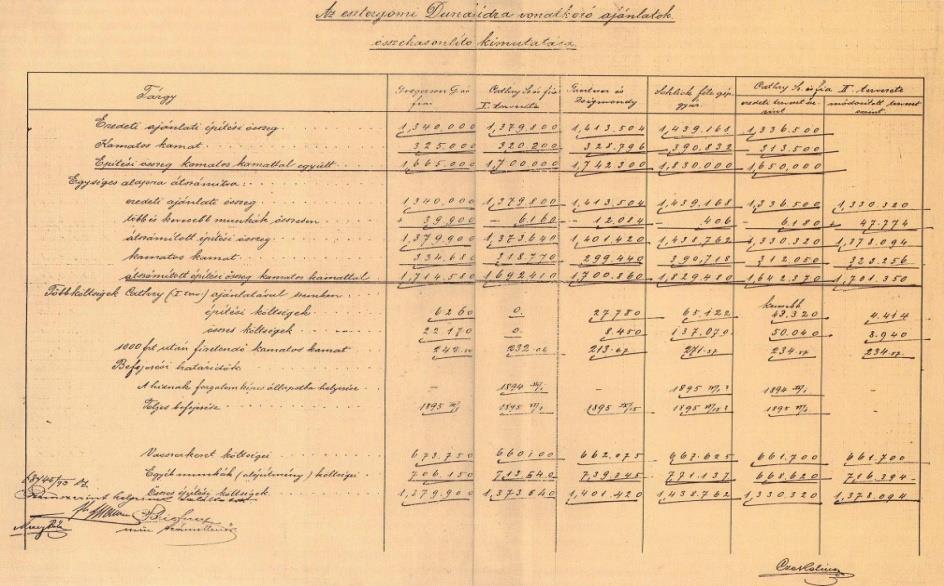 Az esztergomi Dunahidra vonatkozó ajánlatok
összehasonlító kimutatása
Tárgy Gregersen G. és fiai Cathry Sz. és fia I. tervezete Gaertner és Zsigmondy Schlick féle gépgyár Cathry Sz. és fia II. tervezete
eredeti tervezet szerint módosított tervezet szerint
Eredeti ajánlati építési összeg 1,340.000 1,379.800 1,413.504 1,439.168 1,336.500
Kamatos kamat 325.000 320.200 328.796 390.832 313.500
Építési összeg kamatos kamattal együtt 1,665.000 1,700.000 1,742.300 1,830.000 1,650.000
Egységes alapra átszámítva:
eredeti ajánlati összeg 1,340.000 1,379.800 1,413.504 1,439.168 1,336.500 1,330.320
több és kevesebb munkák összesen + 39.900 - 6.160 - 12.084 - 406 - 6.180 + 47.774
átszámított építési összeg 1,379.900 1,373.640 1,401.420 1,438.762 1,330.320 1,378.094
kamatos kamat 334.680 318.770 299.440 390.718 312.050 323.256
átszámított építési összeg kamatos kamattal 1,714.580 1,692.410 1,700.860 1,829.480 1,642.370 1,701.350
Többköltségek Cathry (I. terv) ajánlatával szemben
kevesebb
építési költségek 6260 0. 27.780 65.122 43.320 4.454
összes költségek 22.170 0. 8.450 137.070 50.040 8.940
1000 frt után fizetendő kamatos kamat 232 213 271 234 234
Befejezési határidők
A hidnak forgalom képes állapotba helyezése - 1894 - 1895 1894 -
Teljes befejezése 1895 1895 1895 1895 1895 -
Vasszerkezet költségei 673.750 660.100 662.075 667.625 661.700 661.700
Egyéb munkák (alépítmény) költségei 706.150 713.540 739.345 771.137 668.620 716.394
Összes építési költségek 1,379.900 1,373.640 1,401.420 1,438.762 1,330.320 1,378.094